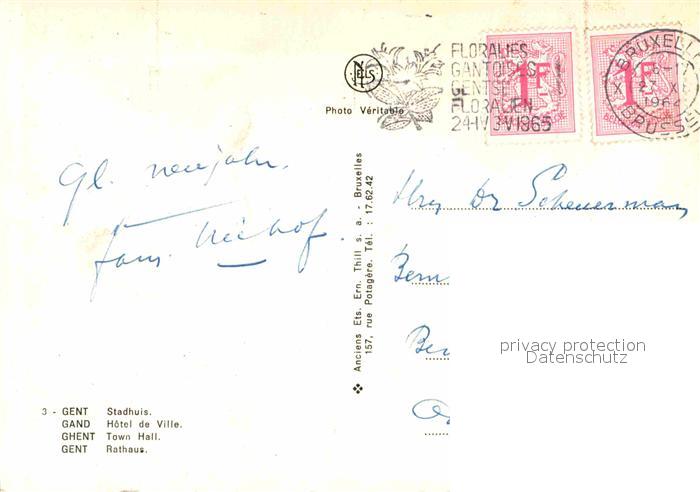 NELS
Photo Véritable
FLORALIES
GANTOISES
GENTSE
FLORALIEN
24-IV 3-V 1965
1F
1F
BRUXELLES
1964
BRUSSEL
Gl. neujahr.
Fam.
Dr Scheuermann
Bern
privacy protection
Datenschutz
Anciens Ets. Ern. Thill s. a. - Bruxelles
157, rue Potagère. Tél. : 17.62.42
3 - GENT Stadhuis.
GAND Hôtel de Ville.
GHENT Town Hall.
GENT Rathaus.